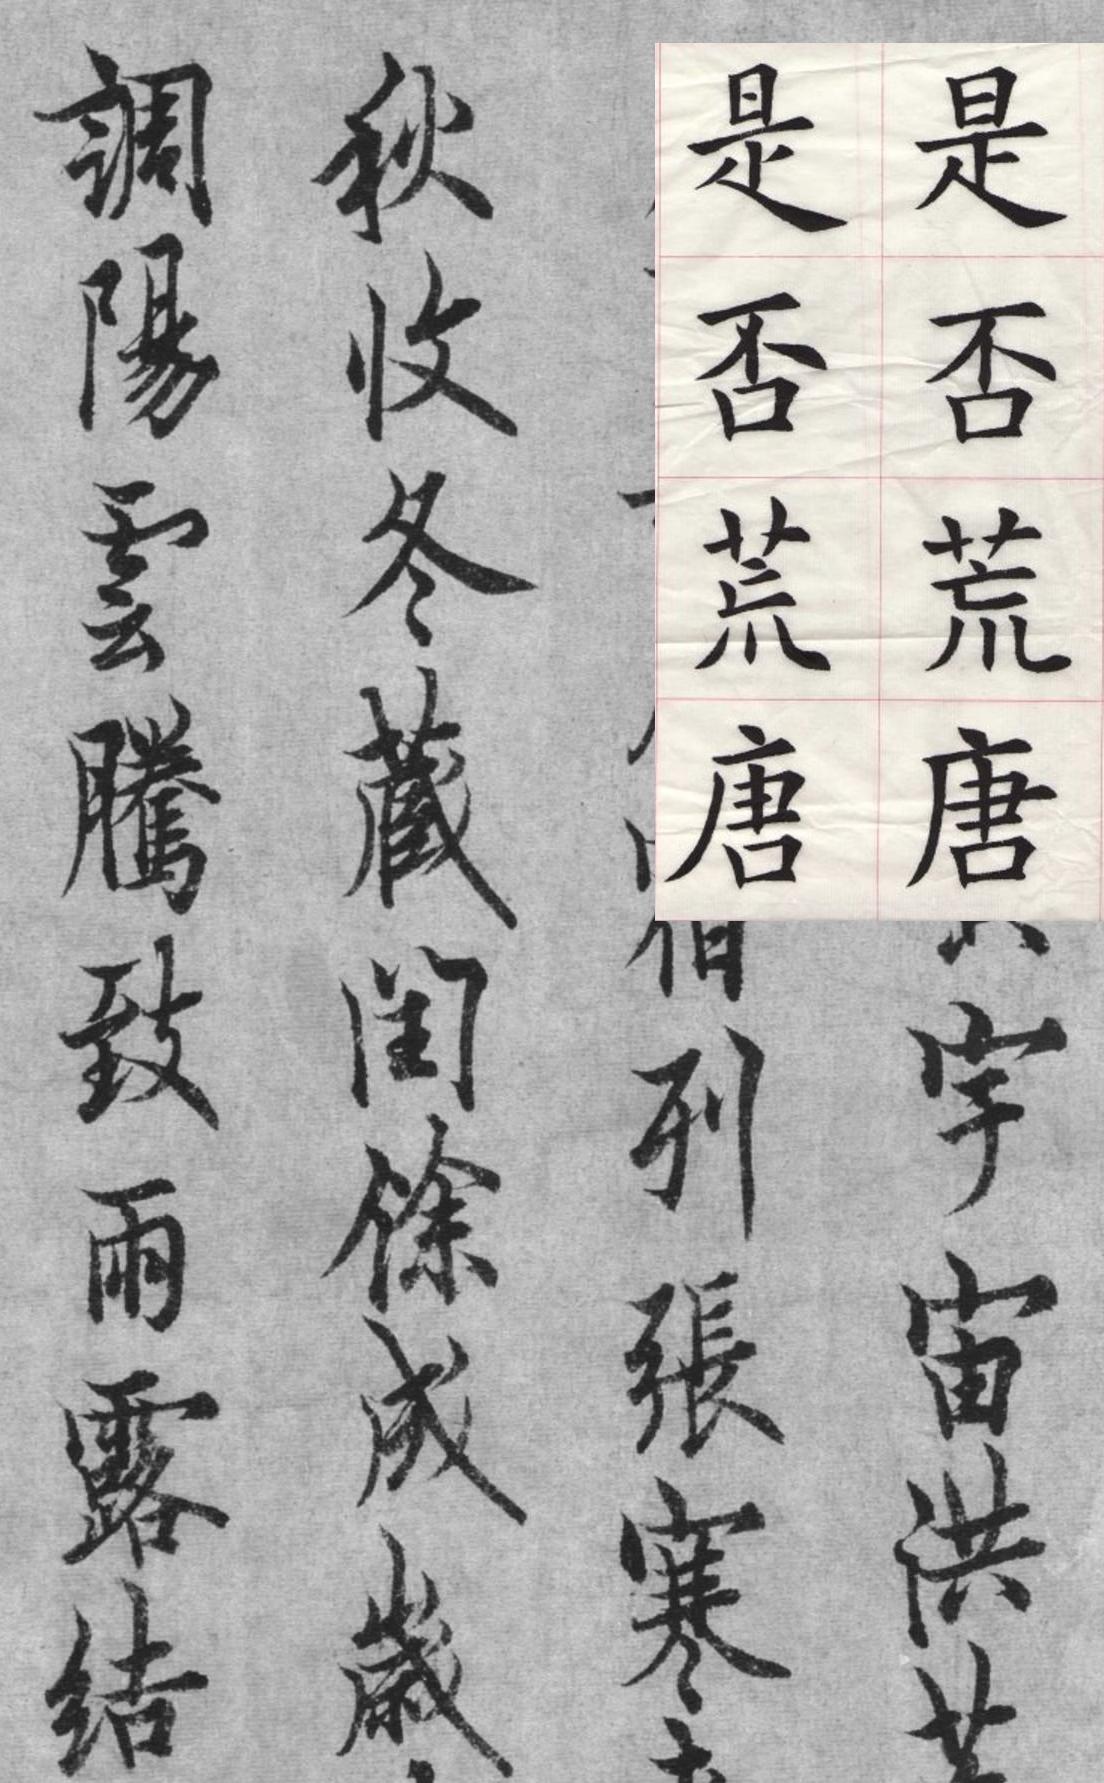 是否荒唐
是否荒唐
宇宙洪
列張寒
秋收冬藏閏餘成歲
調陽雲騰致雨露結